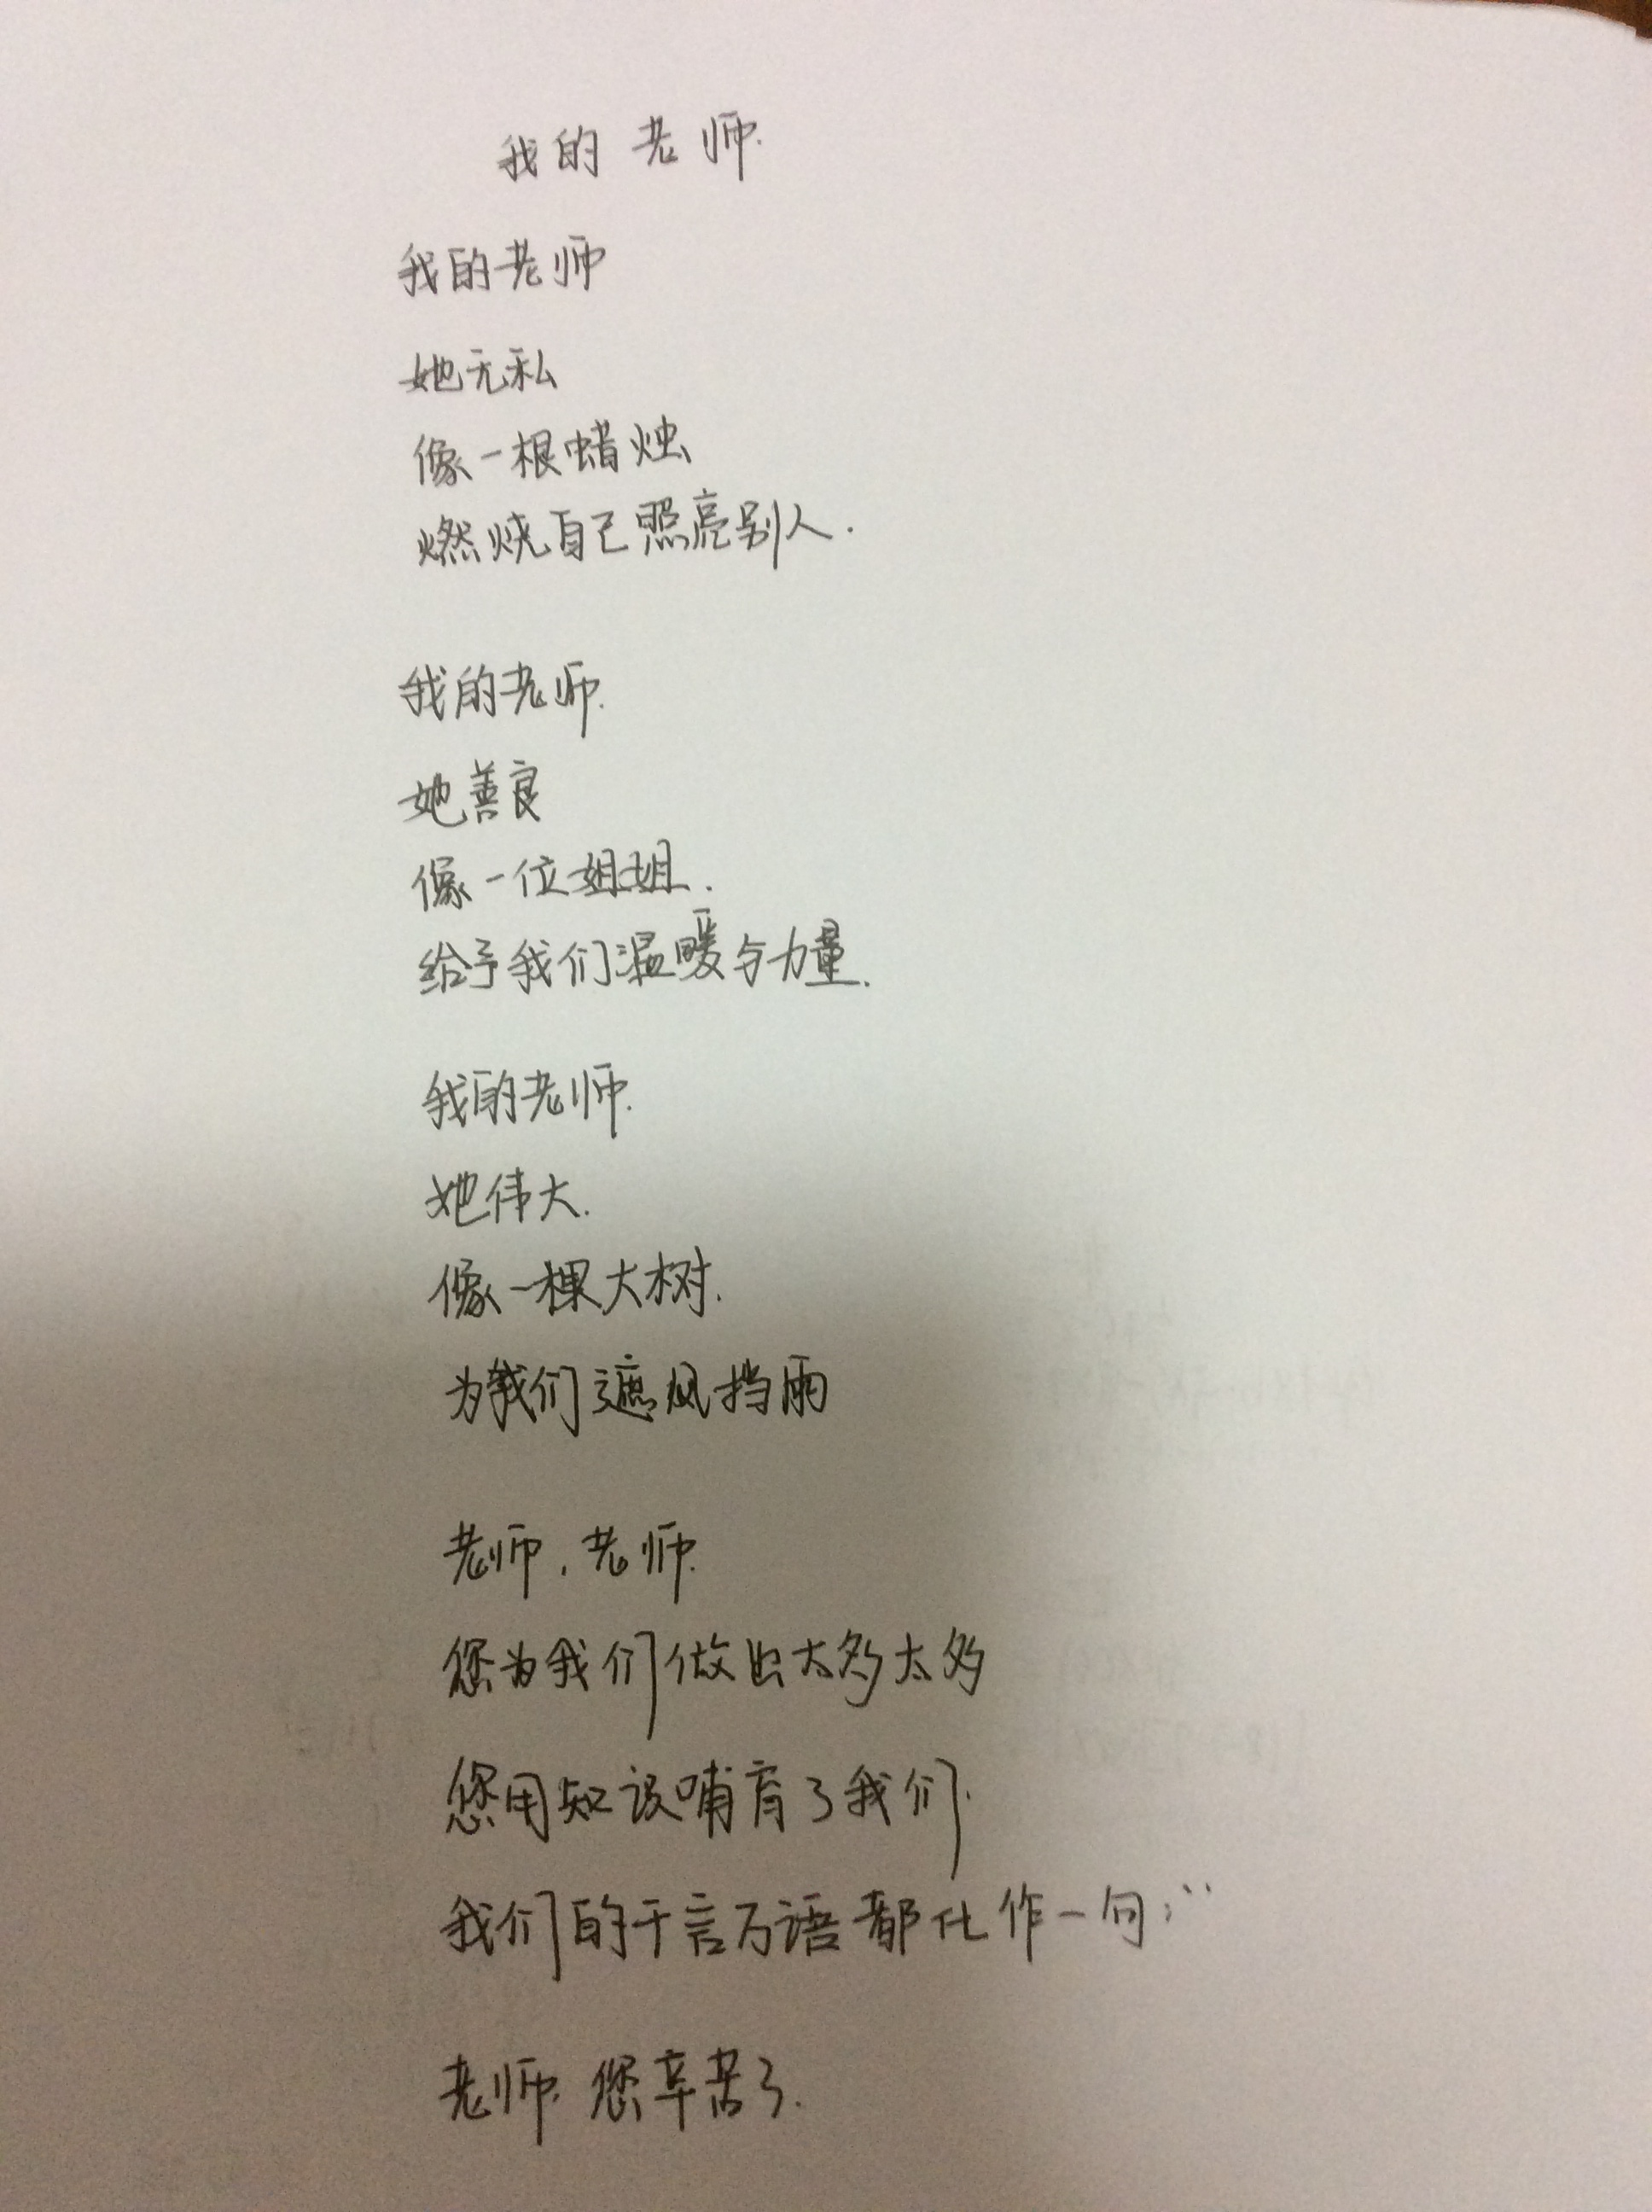 我的老师.
我的老师
她无私
像一根蜡烛
燃烧自己照亮别人.
我的老师.
她善良
像一位姐姐.
给予我们温暖与力量.
我的老师.
她伟大.
像一棵大树.
为我们遮风挡雨
老师,老师.
您为我们做出太多太多
您用知识哺育了我们.
我们的千言万语都化作一句:“
老师,您辛苦了.